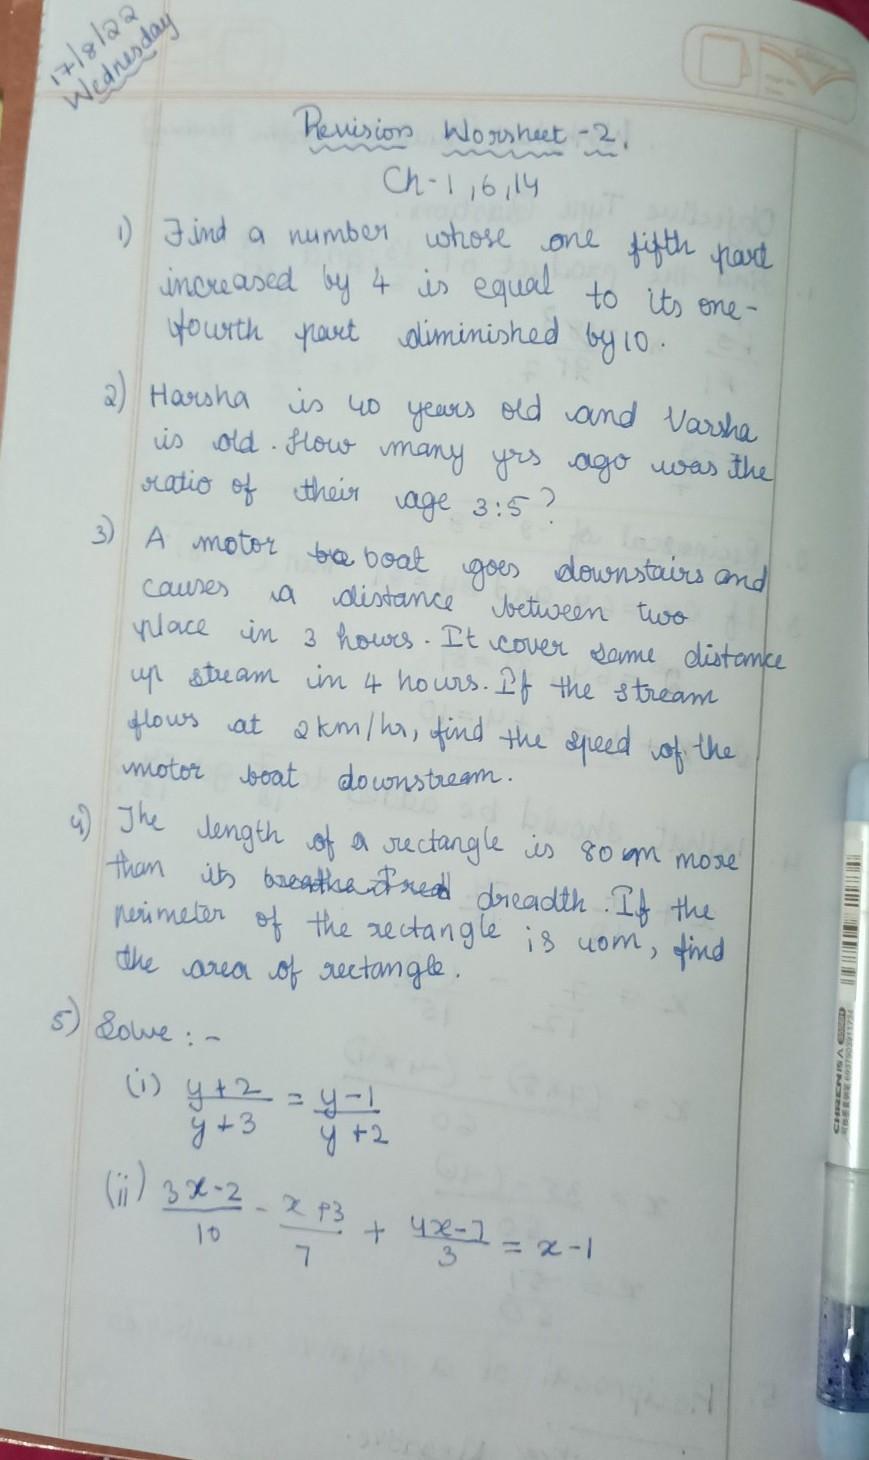 17/8/22
Wednesday
Revision Worsheet - 2.
Ch-1,6,14
1) Find a number whose one fifth part
increased by 4 is equal to its one-
fourth part diminished by 10.
2) Harsha is 40 years old and Varsha
is old. How many yrs ago was the
ratio of their age 3:5?
3) A motor boat goes downstairs and
causes a distance between two
place in 3 hours. It cover same distance
up stream in 4 hours. If the stream
flows at 2km/hr, find the speed of the
motor boat downstream.
4) The length of a rectangle is 80 cm more
than its dreadth. If the
perimeter of the rectangle is 40m, find
the area of rectangle.
5) Solve :-
(i) y+2/y+3 = y-1/y+2
(ii) 3x-2/10 - x+3/7 + 4x-7/3 = x-1